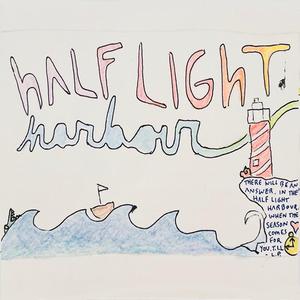 HALF LIGHT
harbour
THERE WILL BE AN
ANSWER, IN THE
HALF LIGHT
HARBOUR,
WHEN THE
SEASON
COMES
FOR
YOU.